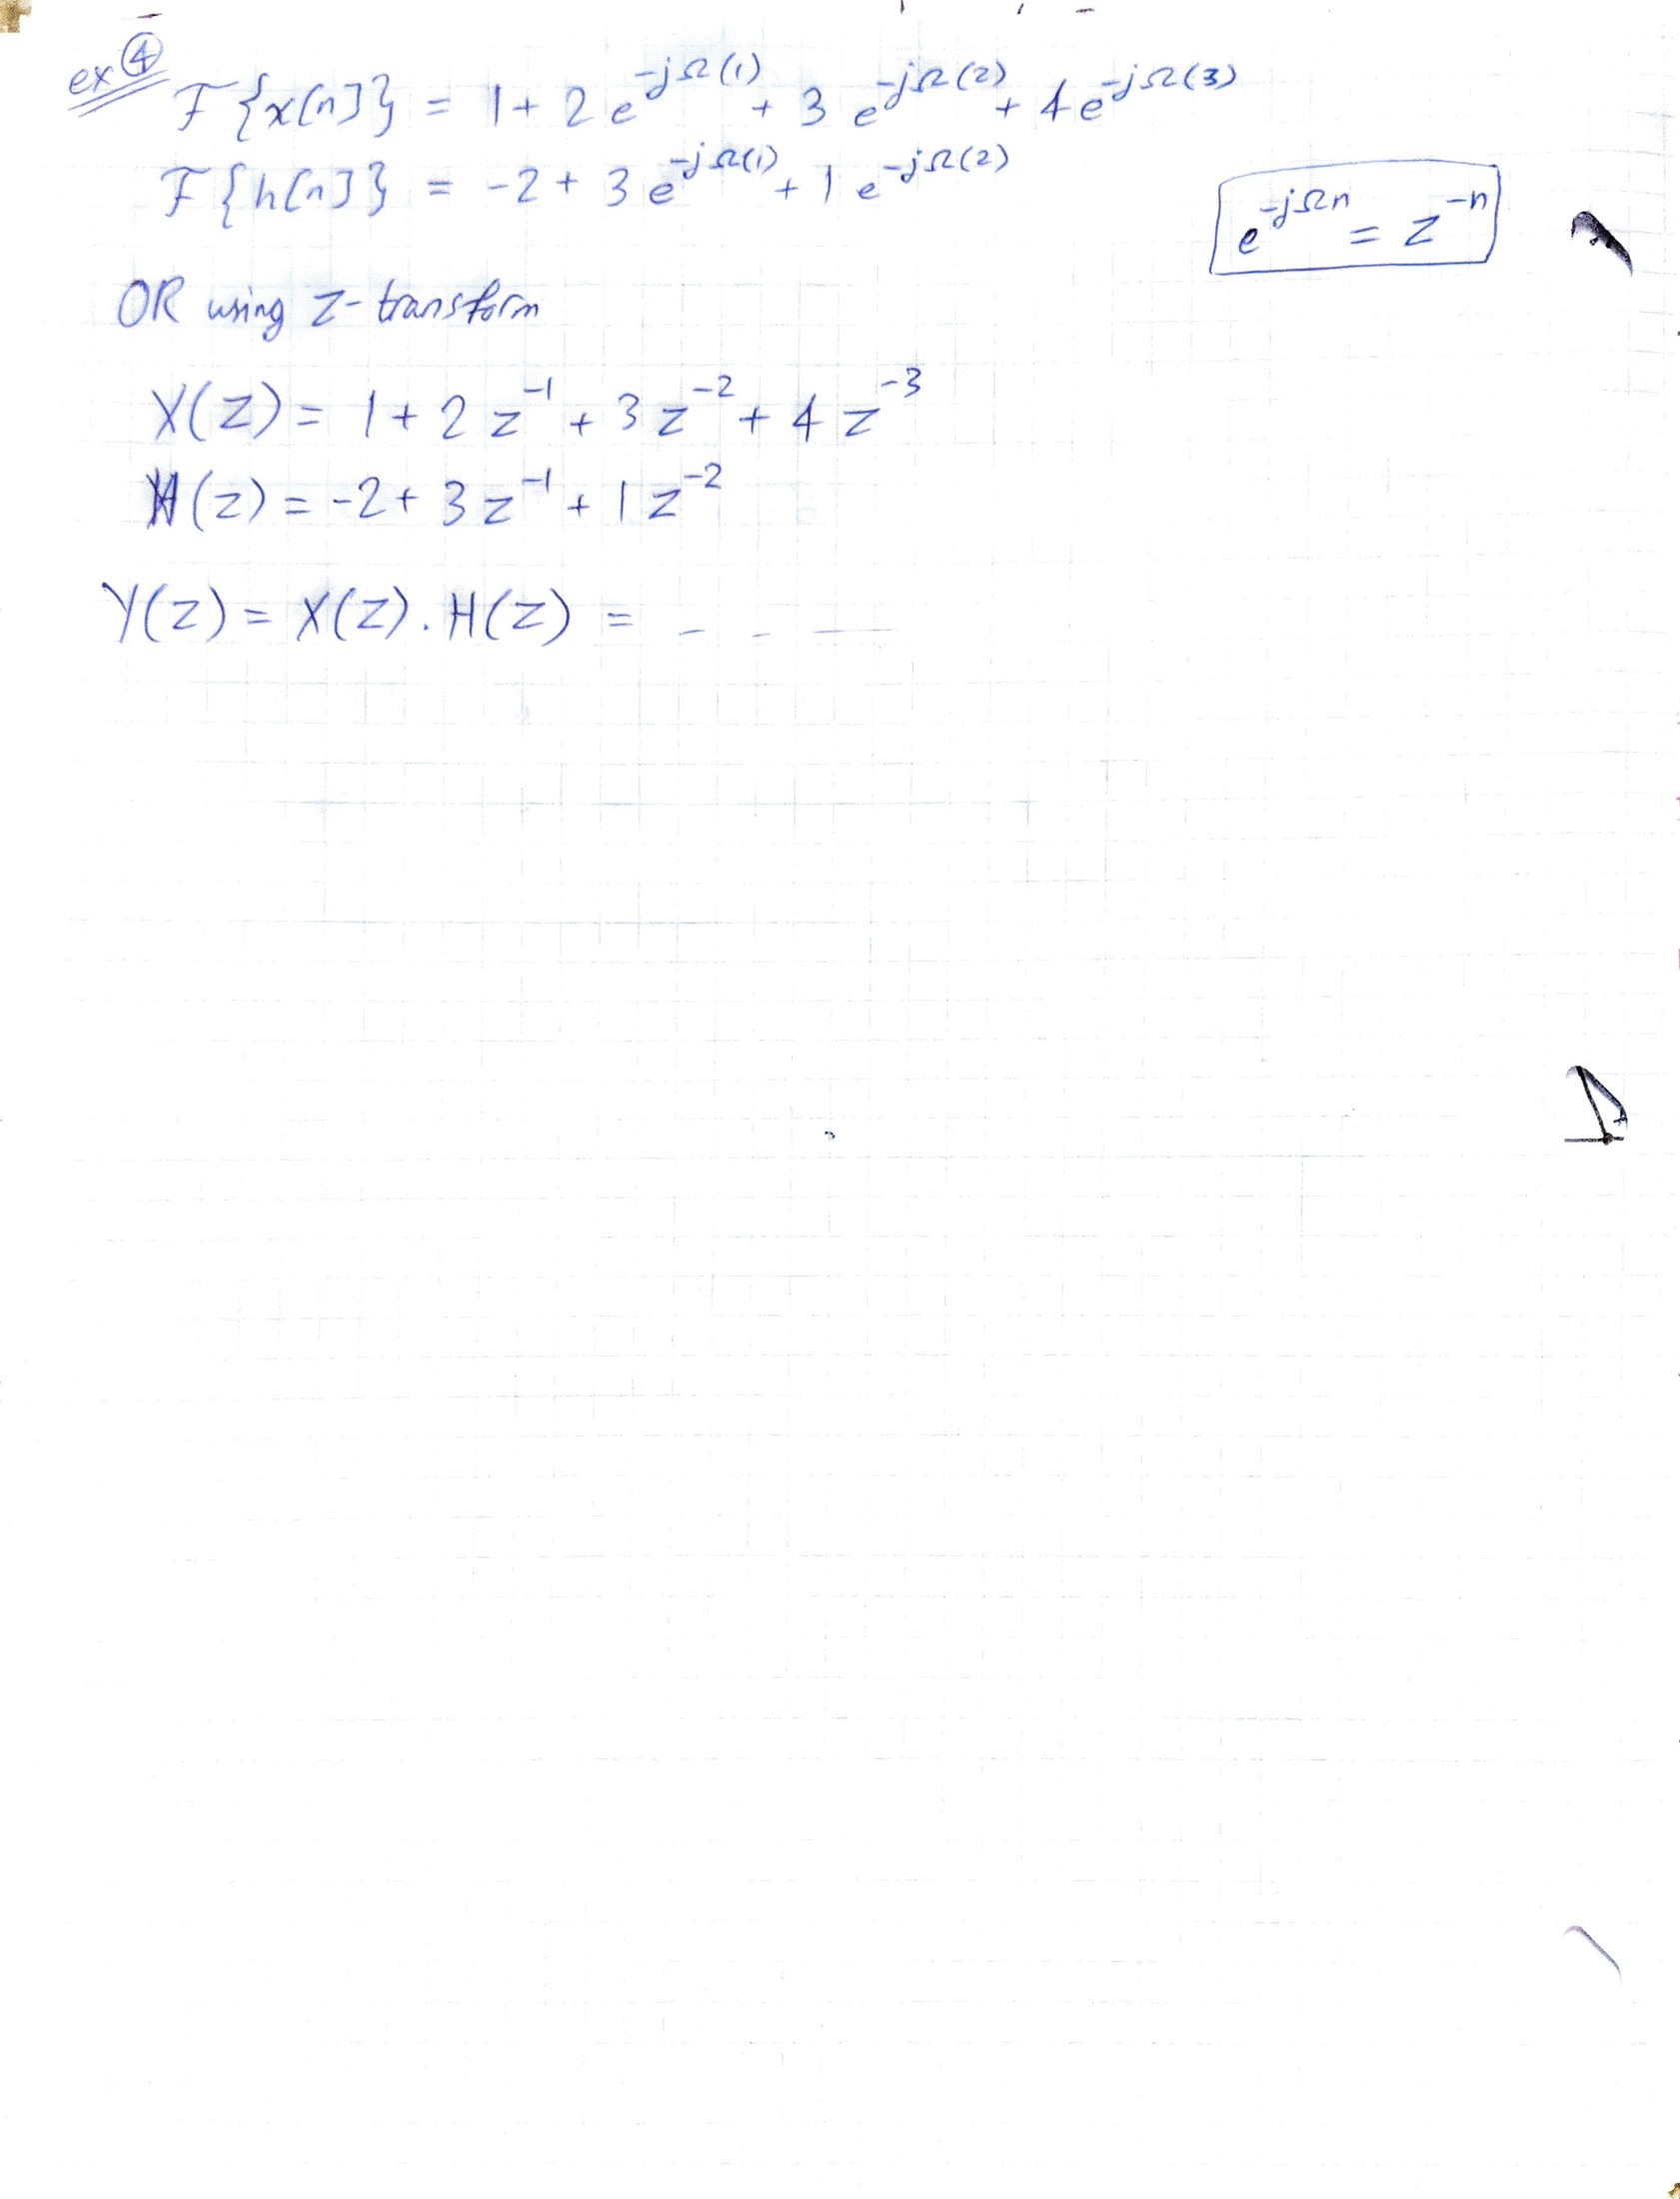 ex ④
F{x[n]} = 1 + 2 e^{-jΩ(1)} + 3 e^{-jΩ(2)} + 4 e^{-jΩ(3)}
F{h[n]} = -2 + 3 e^{-jΩ(1)} + 1 e^{-jΩ(2)}
e^{-jΩn} = z^{-n}
OR using z-transform
X(z) = 1 + 2 z^{-1} + 3 z^{-2} + 4 z^{-3}
H(z) = -2 + 3 z^{-1} + 1 z^{-2}
Y(z) = X(z) . H(z) = _ _ __